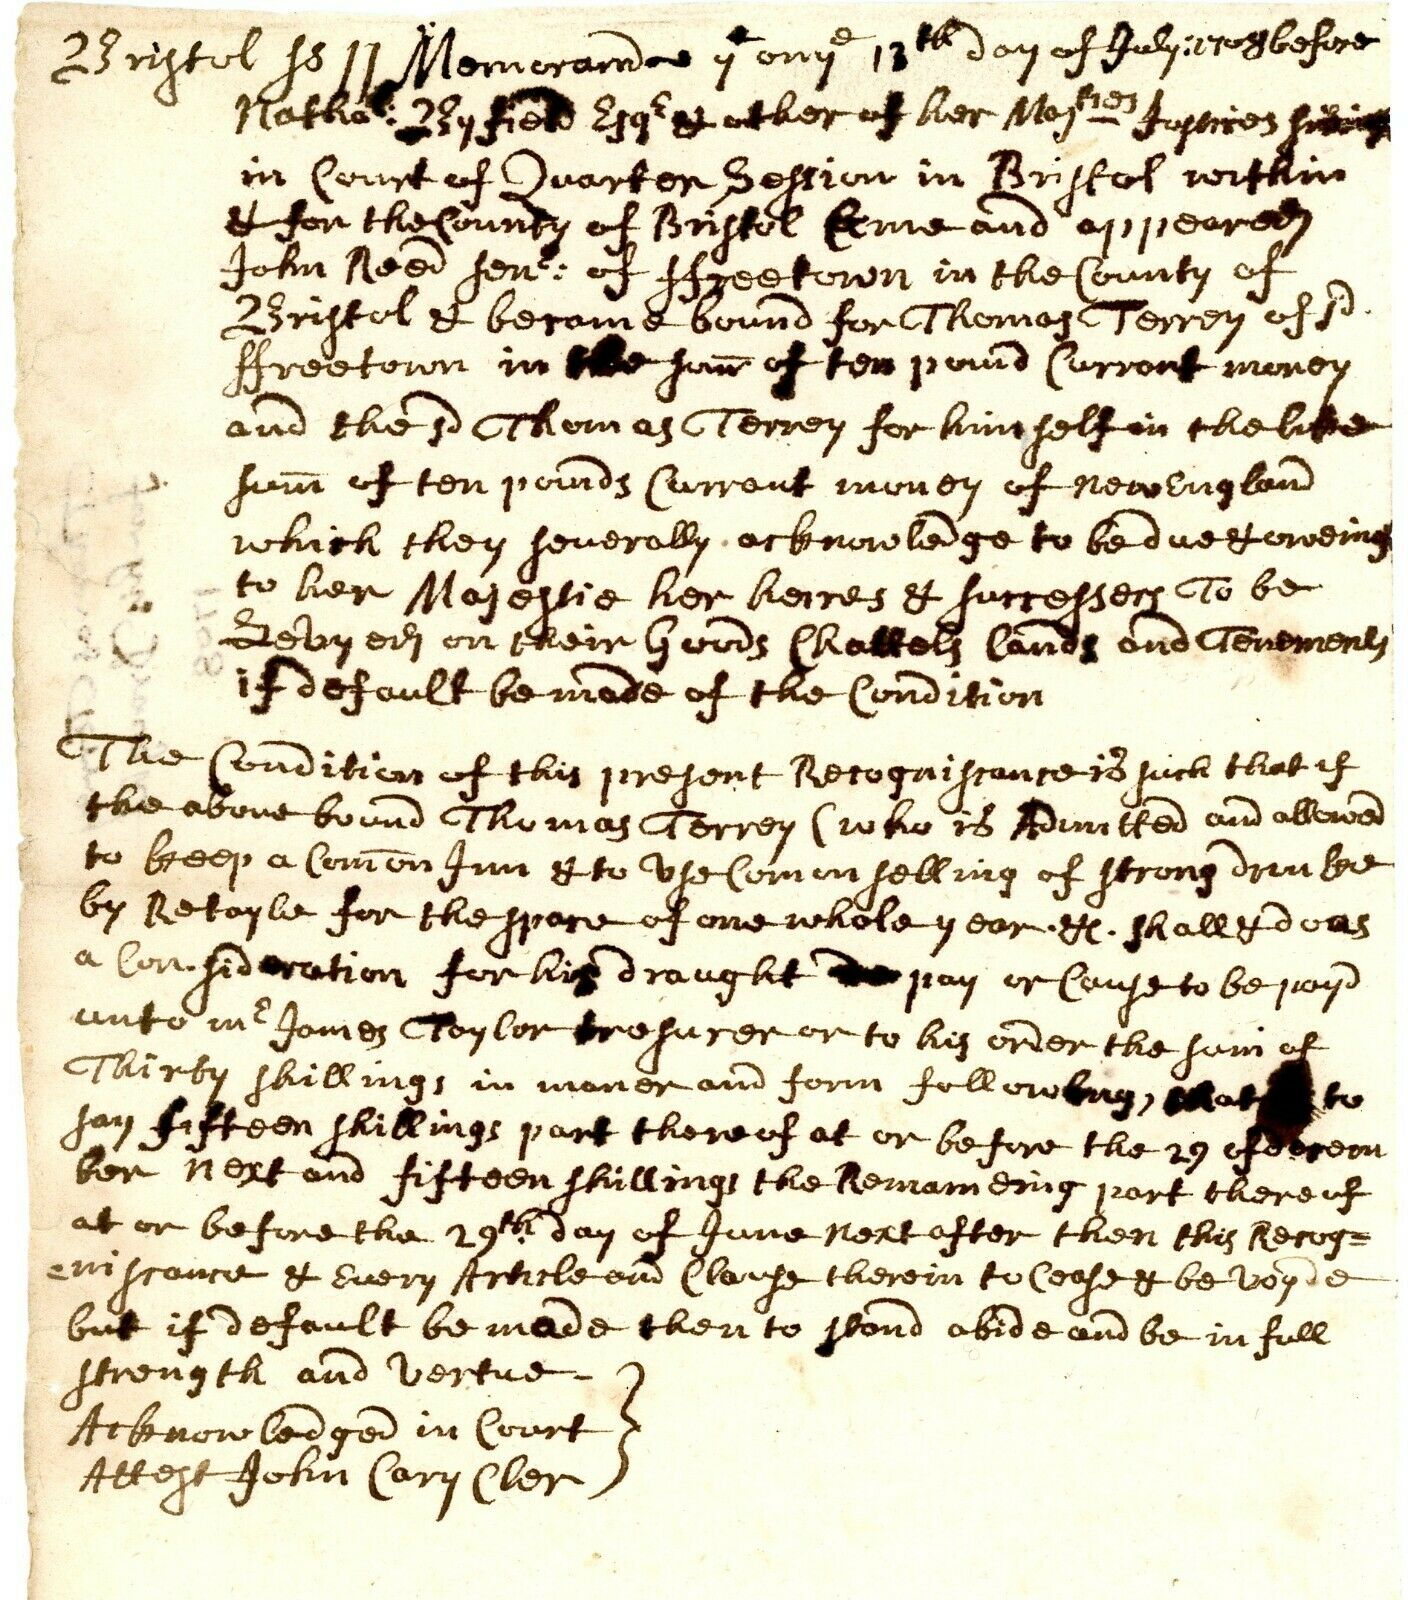 Bristol ss // Memorand ye on ye 13th day of July: 1708 before
Nathal: Byfield Esqr & other of her Majties Justices sitting
in Court of Quarter Session in Bristol within
& for the County of Bristol Came and appeared
John Reed senr: of ffreetown in the County of
Bristol & became bound for Thomas Terrey of sd
ffreetown in the sum of ten pound Current money
and the sd Thomas Terrey for himself in the like
sum of ten pounds Current money of New England
which they severally acknowledge to be due & oweing
to her Majestie her heires & successers To be
Levyed on their Goods Chattels Lands and Tenements
if default be made of the Condition
The Condition of this present Recogniscance is such that if
the above bound Thomas Terrey (who is Admitted and allowed
to keep a Comon Inn & to Use Comon selling of strong drinke
by Retayle for the space of one whole year &c. shall & do as
a Con.sideration for his draught pay or Cause to be payd
unto mr James Taylor tresurer or to his order the sum of
Thirty shillings in maner and form following, that to
say fifteen shillings part thereof at or before the 29 of decem
ber next and fifteen shillings the Remaineing part thereof
at or before the 29th day of June next after then this Recog=
niscance & Every Article and Clause therein to Cease & be voyde
but if default be made then to stand abide and be in full
strength and vertue -
Acknowledged in Court
Attest John Cary Cler
1708